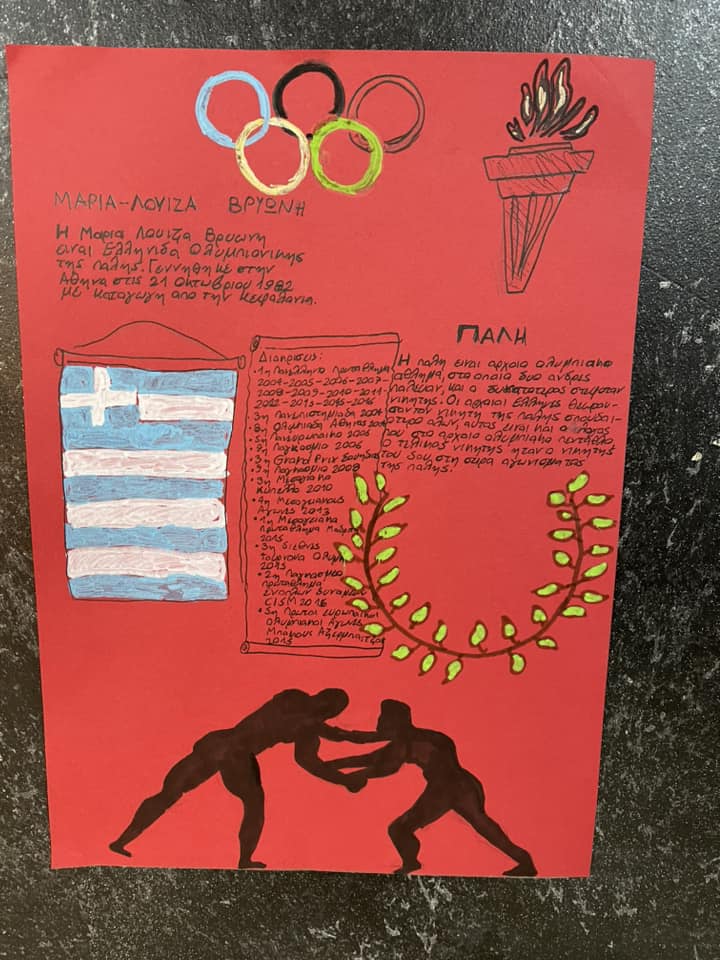 ΜΑΡΙΑ-ΛΟΥΙΖΑ ΒΡΥΩΝΗ
Η Μαρια Λουιζα Βρυωνη
ειναι Ελληνιδα Ολυμπιονικης
της παλης. Γεννηθηκε στην
Αθηνα στις 21 Οκτωβριου 1982
με καταγωγη απο την Κεφαλονια.
Διακρισεις:
•1η Πανελληνιο πρωταθλημα
2004-2005-2006-2007-
2008-2009-2010-2011-
2012-2013-2015-2016
3η Πανεπιστημιαδα 2004
8η Ολυμπιαδα Αθηνας 2004
•5η Πανευρωπαικο 2005
•8η Παγκοσμιο 2006
•3η Grand Prix Σουηδιας
•9η Παγκοσμιο 2008
•3η Μεσογειακο
Κυπελλο 2010
•4η Μεσογειακους
Αγωνες 2013
•1η Μεσογειακο
πρωταθλημα
2015
•3η διεθνες
τουρνουα
2015
•2η Παγκοσμιο
πρωταθλημα
Ενοπλων Δυναμεων
CISM 2016
•5η Πρωτοι Ευρωπαικοι
Ολυμπιακοι Αγωνες
Μπακους Αζερμπαιτζαν
2015
ΠΑΛΗ
Η παλη ειναι αρχαιο ολυμπιακο
αθλημα, στο οποιο δυο ανδρες
παλευαν, και ο δυνατοτερος στεφοταν
νικητης. Οι αρχαιοι Ελληνες θεωρου-
σαν τον νικητη της παλης σπουδαι-
οτερο αλων, αυτος ειναι και ο λογος
που στο αρχαιο ολυμπιακο πενταθλο
ο τελικος νικητης ηταν ο νικητης
του 5ου, στη σειρα αγωνισματος
της παλης.